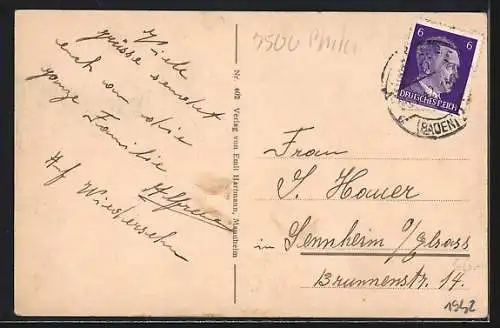 Viele
grüsse sendet
euch an die
ganze Familie
Alfred
Auf Wiedersehn
Nr. 402 Verlag von Emil Hartmann, Mannheim
6 6
DEUTSCHES REICH
(BADEN)
Frau
J. Hauer
in Sennheim o/Elsass
Brunnenstr. 14.
1942